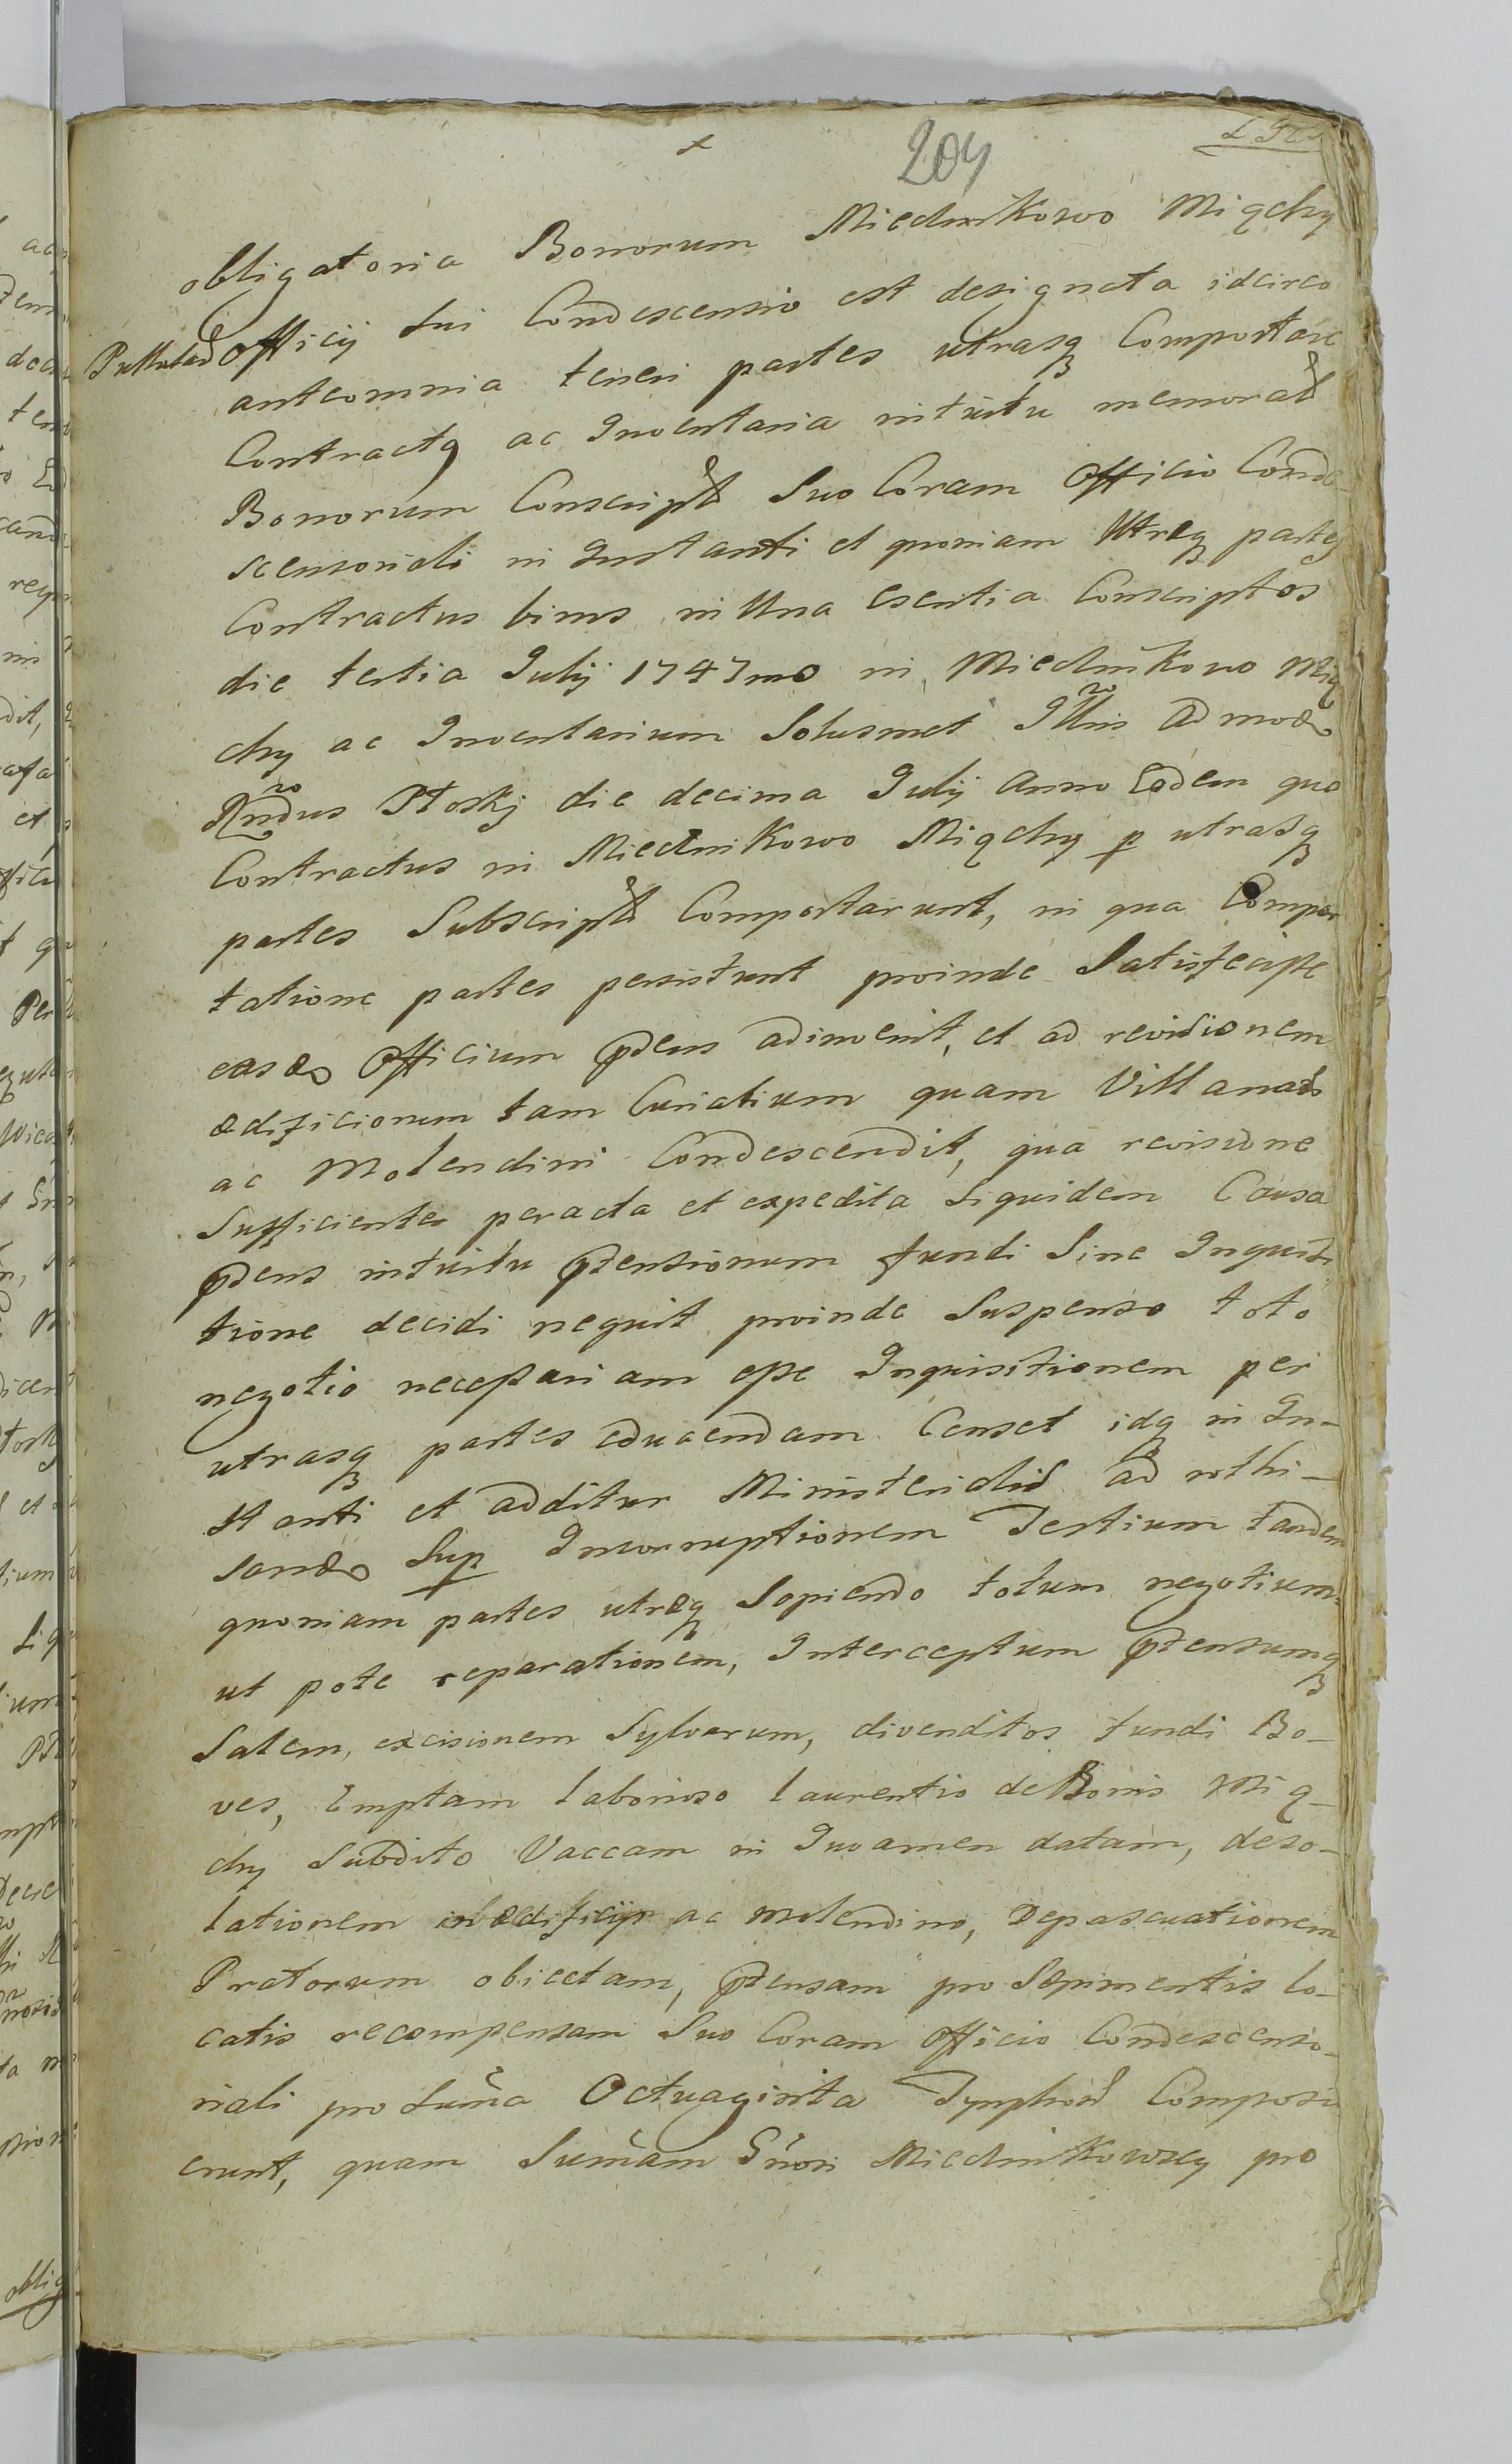 204
obligatoria Bonorum Miednikowo Miąchy
Officij sui Condescensio est designata idcirco
anteomnia teneri partes utrasq Comportare
Contractq ac Inventaria intuitu memorat
Bonorum Conscript Suo Coram Officio Conde-
scensoriali in Instanti et quoniam Utræq partes
Contractus binos in Una esentia Conscriptos
die tertia Julij 1747mo in Miednikowo Mią
chy ac Inventarium Solusmet Illris admod
Rndus Płoskj die decima Julij Anno Eodem quo
Contractus in Miednikowo Miąchy p utrasq
partes Subscript Comportarunt, in qua Compor
tatione partes persistunt proinde Satisfecisse
easd Officium pdens adinvenit, et ad revisionem
ædificiorum tam Curialium quam Villanar
ac Molendini Condescendit, qua revisione
Sufficienter peracta et expedita Siquidem Causa
pdens intuitu ptensionum fundi Sine Inquisi
tione decidi nequit proinde Suspenso toto
negotio necessariam esse Inquisitionem per
utrasq partes educendam Censet idq in In-
stanti et additur Ministerialis ad rothi-
sand Sup Incorruptionem Testium tandem
quoniam partes utræq Sopiendo totum negotium
ut pote reparationem, Interceptum ptensumq
Salem, excisionem Sylvarum, divenditos fundi Bo-
ves, Emptam laborioso Laurentio de Bonis Mią-
chy Subdito Vaccam in Juvamen datam, deso-
lationem in ædificijs ac molendino, Depascuationem
Pratorum obiectam, ptensam pro Sepimentis lo-
catis recompensam Suo Coram Officio Condescenso-
riali pro Suma Octuaginta Tynphor Composu
erunt, quam Sumam Gnosi Miednikowscy pro